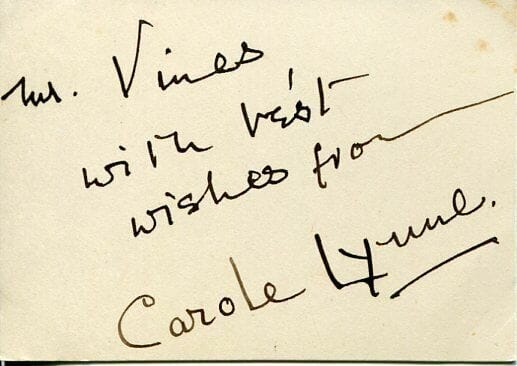 Mr. Vines
with best
wishes from
Carole Lynne.